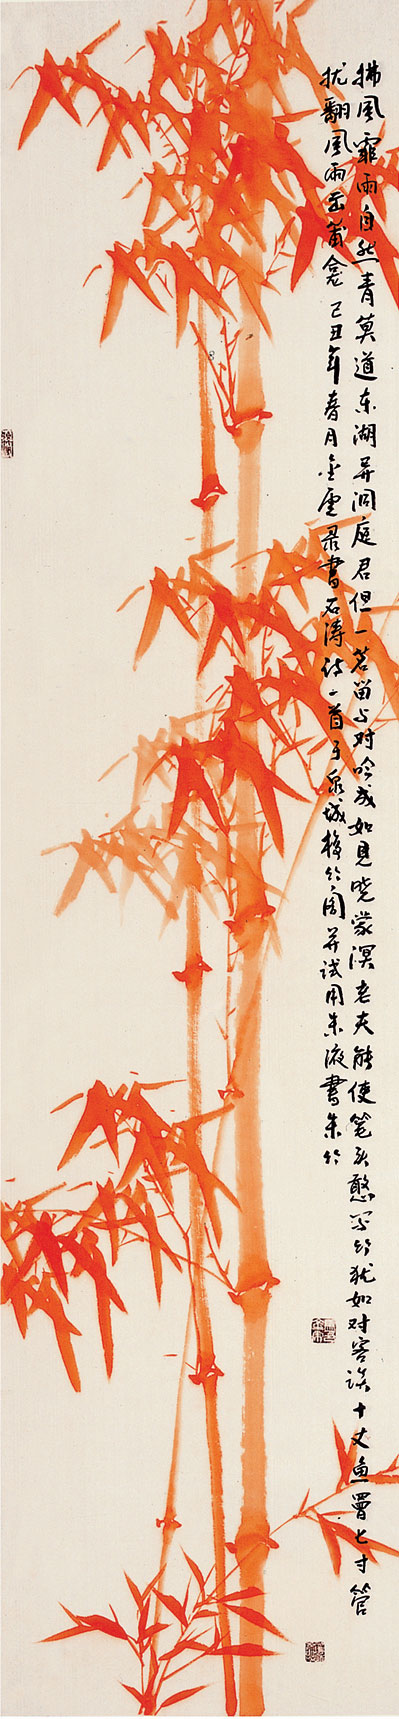 拂風霏雨自然青莫道东湖异洞庭君但一茗留与对吟成如見晓蒙溟老夫能使笔头憨写竹犹如对客谈十丈鱼罾七寸管
扰翻風雨出莆龛己丑年春月金雲录書石涛诗一首于泉城梅竹阁并试用朱液畫朱竹